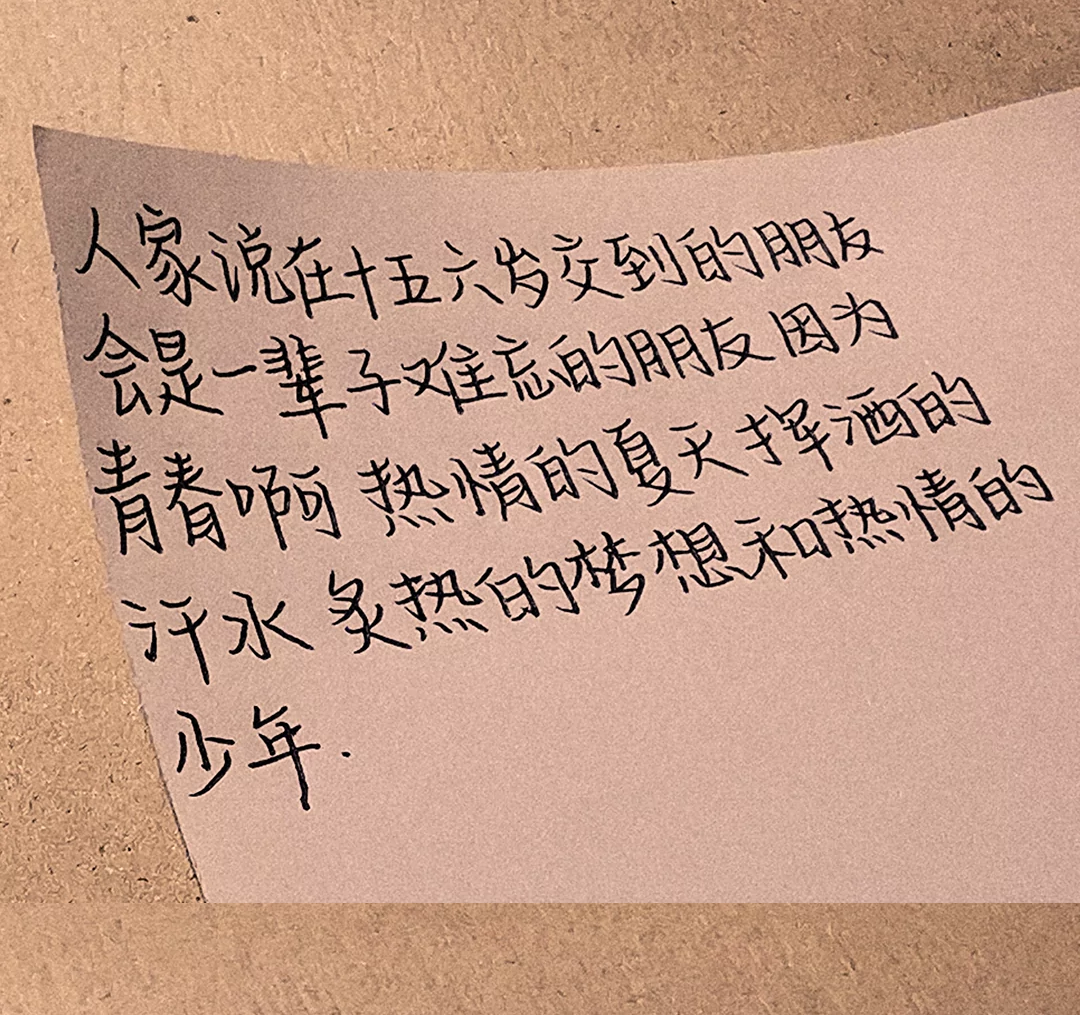 人家说在十五六岁交到的朋友
会是一辈子难忘的朋友因为
青春啊 热情的夏天挥洒的
汗水 炙热的梦想和热情的
少年.